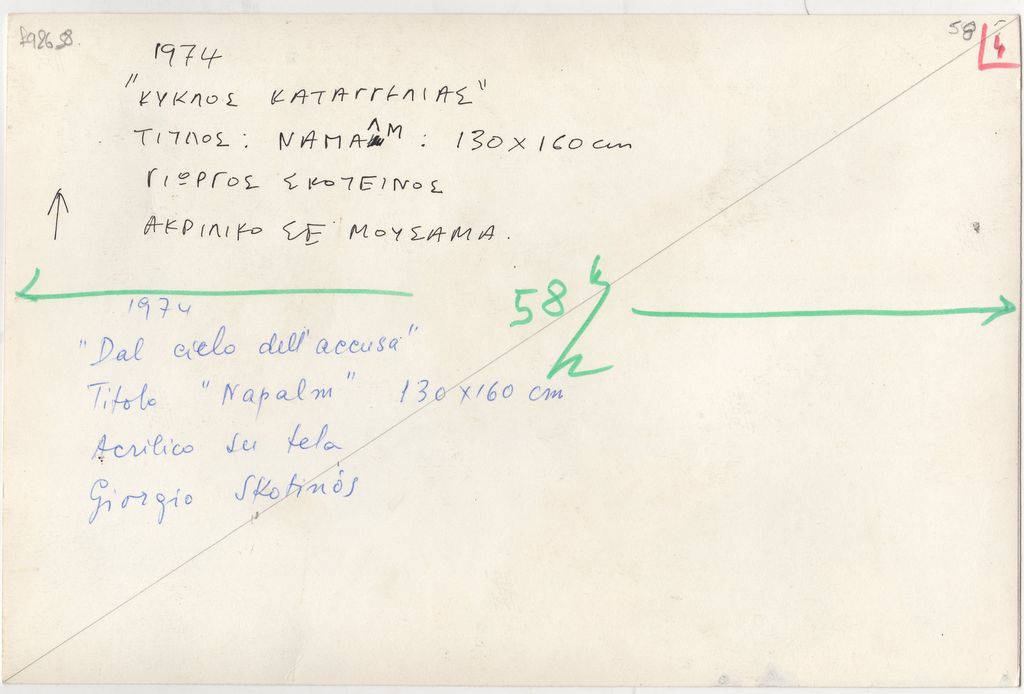 79863 8.
58
4
1974
"ΚΥΚΛΟΣ ΚΑΤΑΓΓΕΛΙΑΣ"
ΤΙΤΛΟΣ: ΝΑΠΑΛΜ : 130×160 cm
ΓΙΩΡΓΟΣ ΣΚΟΤΕΙΝΟΣ
ΑΚΡΙΛΙΚΟ ΣΕ ΜΟΥΣΑΜΑ.
58
1974
"Dal ciclo dell'accusa"
Titolo "Napalm" 130×160 cm
Acrilico su tela
Giorgio Skotinòs